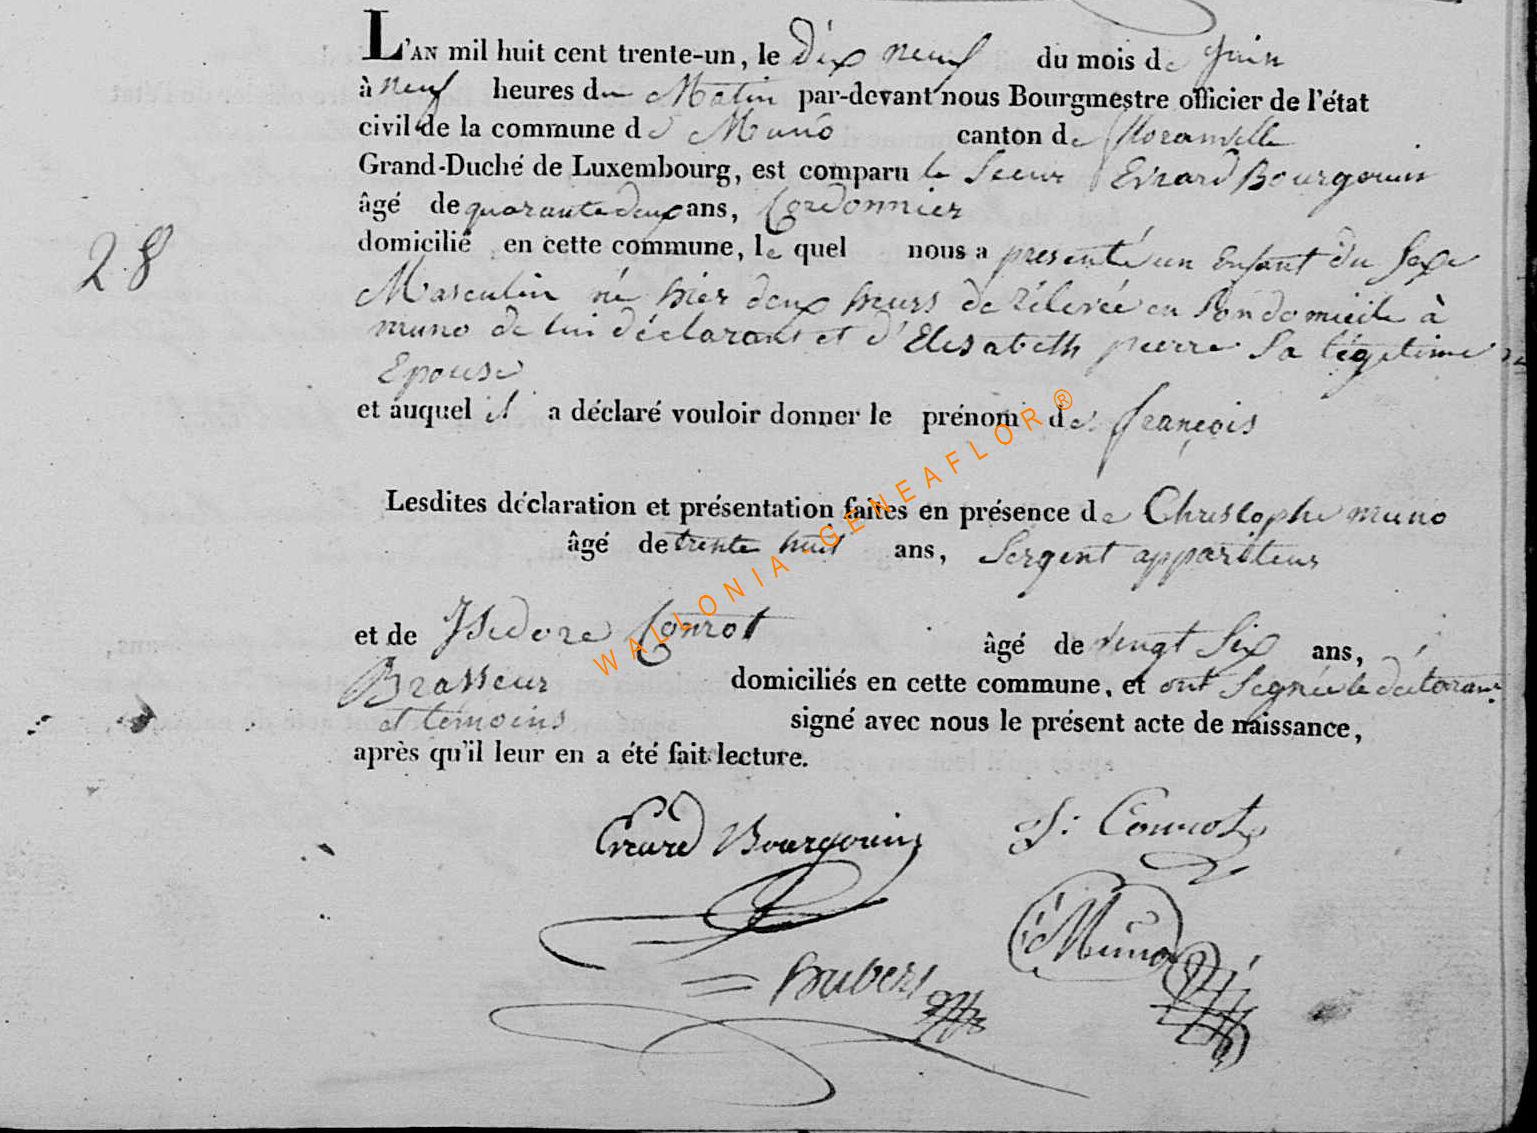 L'AN mil huit cent trente-un, le dix neuf du mois de juin
à neuf heures du Matin par-devant nous Bourgmestre officier de l'état
civil de la commune de Muno canton de florenville
Grand-Duché de Luxembourg, est comparu le Sieur Evrard Bourgouin
âgé de quarante deux ans, Cordonnier
domicilié en cette commune, le quel nous a presenté un Enfant du Sexe
28
Masculin né hier deux heurs de rélevée en Son domicile à
muno de lui déclarant et d'Elisabeth pierre Sa légitime
Epouse
et auquel il a déclaré vouloir donner le prénom de françois
Lesdites déclaration et présentation faites en présence de Christophe muno
âgé de trente huit ans, Sergent appariteur
et de Isidore Conrot âgé de vingt Six ans,
Brasseur domiciliés en cette commune, et ont Signée le déclarant
et témoins signé avec nous le présent acte de naissance,
après qu'il leur en a été fait lecture.
Evrard Bourgouin J: Conrot
Muno
hubert
WALLONIA-GENEAFLOR®